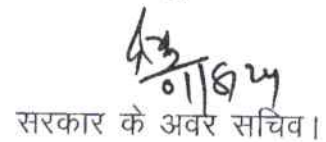 01/8/24
सरकार के अवर सचिव।